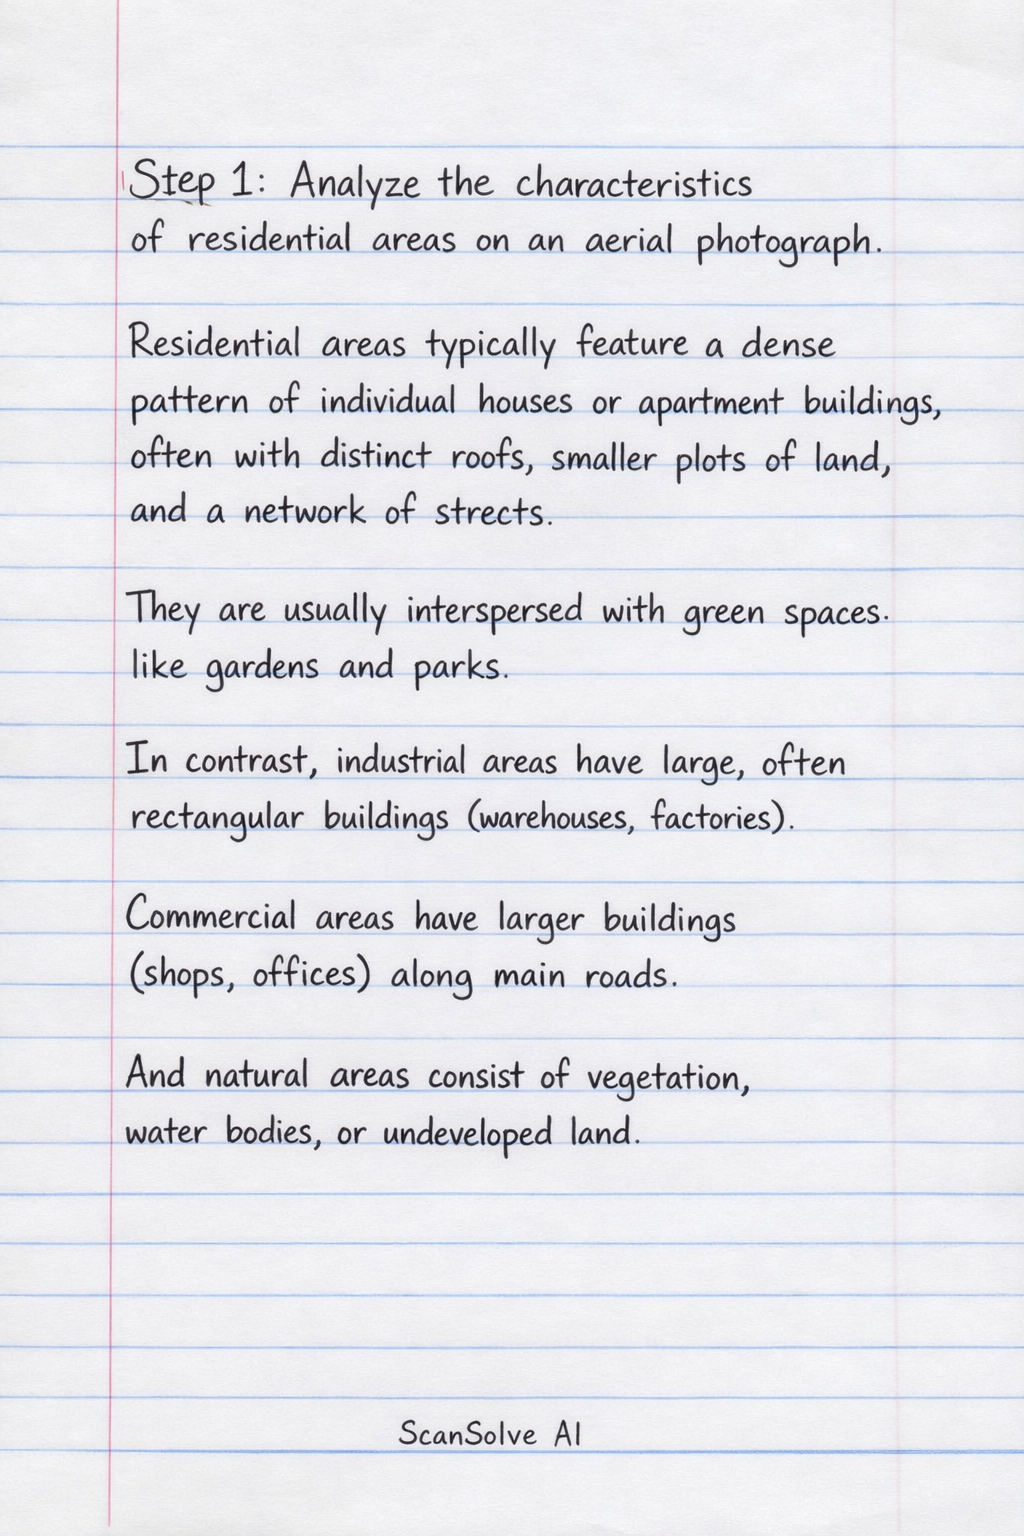 Step 1: Analyze the characteristics
of residential areas on an aerial photograph.
Residential areas typically feature a dense
pattern of individual houses or apartment buildings,
often with distinct roofs, smaller plots of land,
and a network of strects.
They are usually interspersed with green spaces.
like gardens and parks.
In contrast, industrial areas have large, often
rectangular buildings (warehouses, factories).
Commercial areas have larger buildings
(shops, offices) along main roads.
And natural areas consist of vegetation,
water bodies, or undeveloped land.
ScanSolve AI